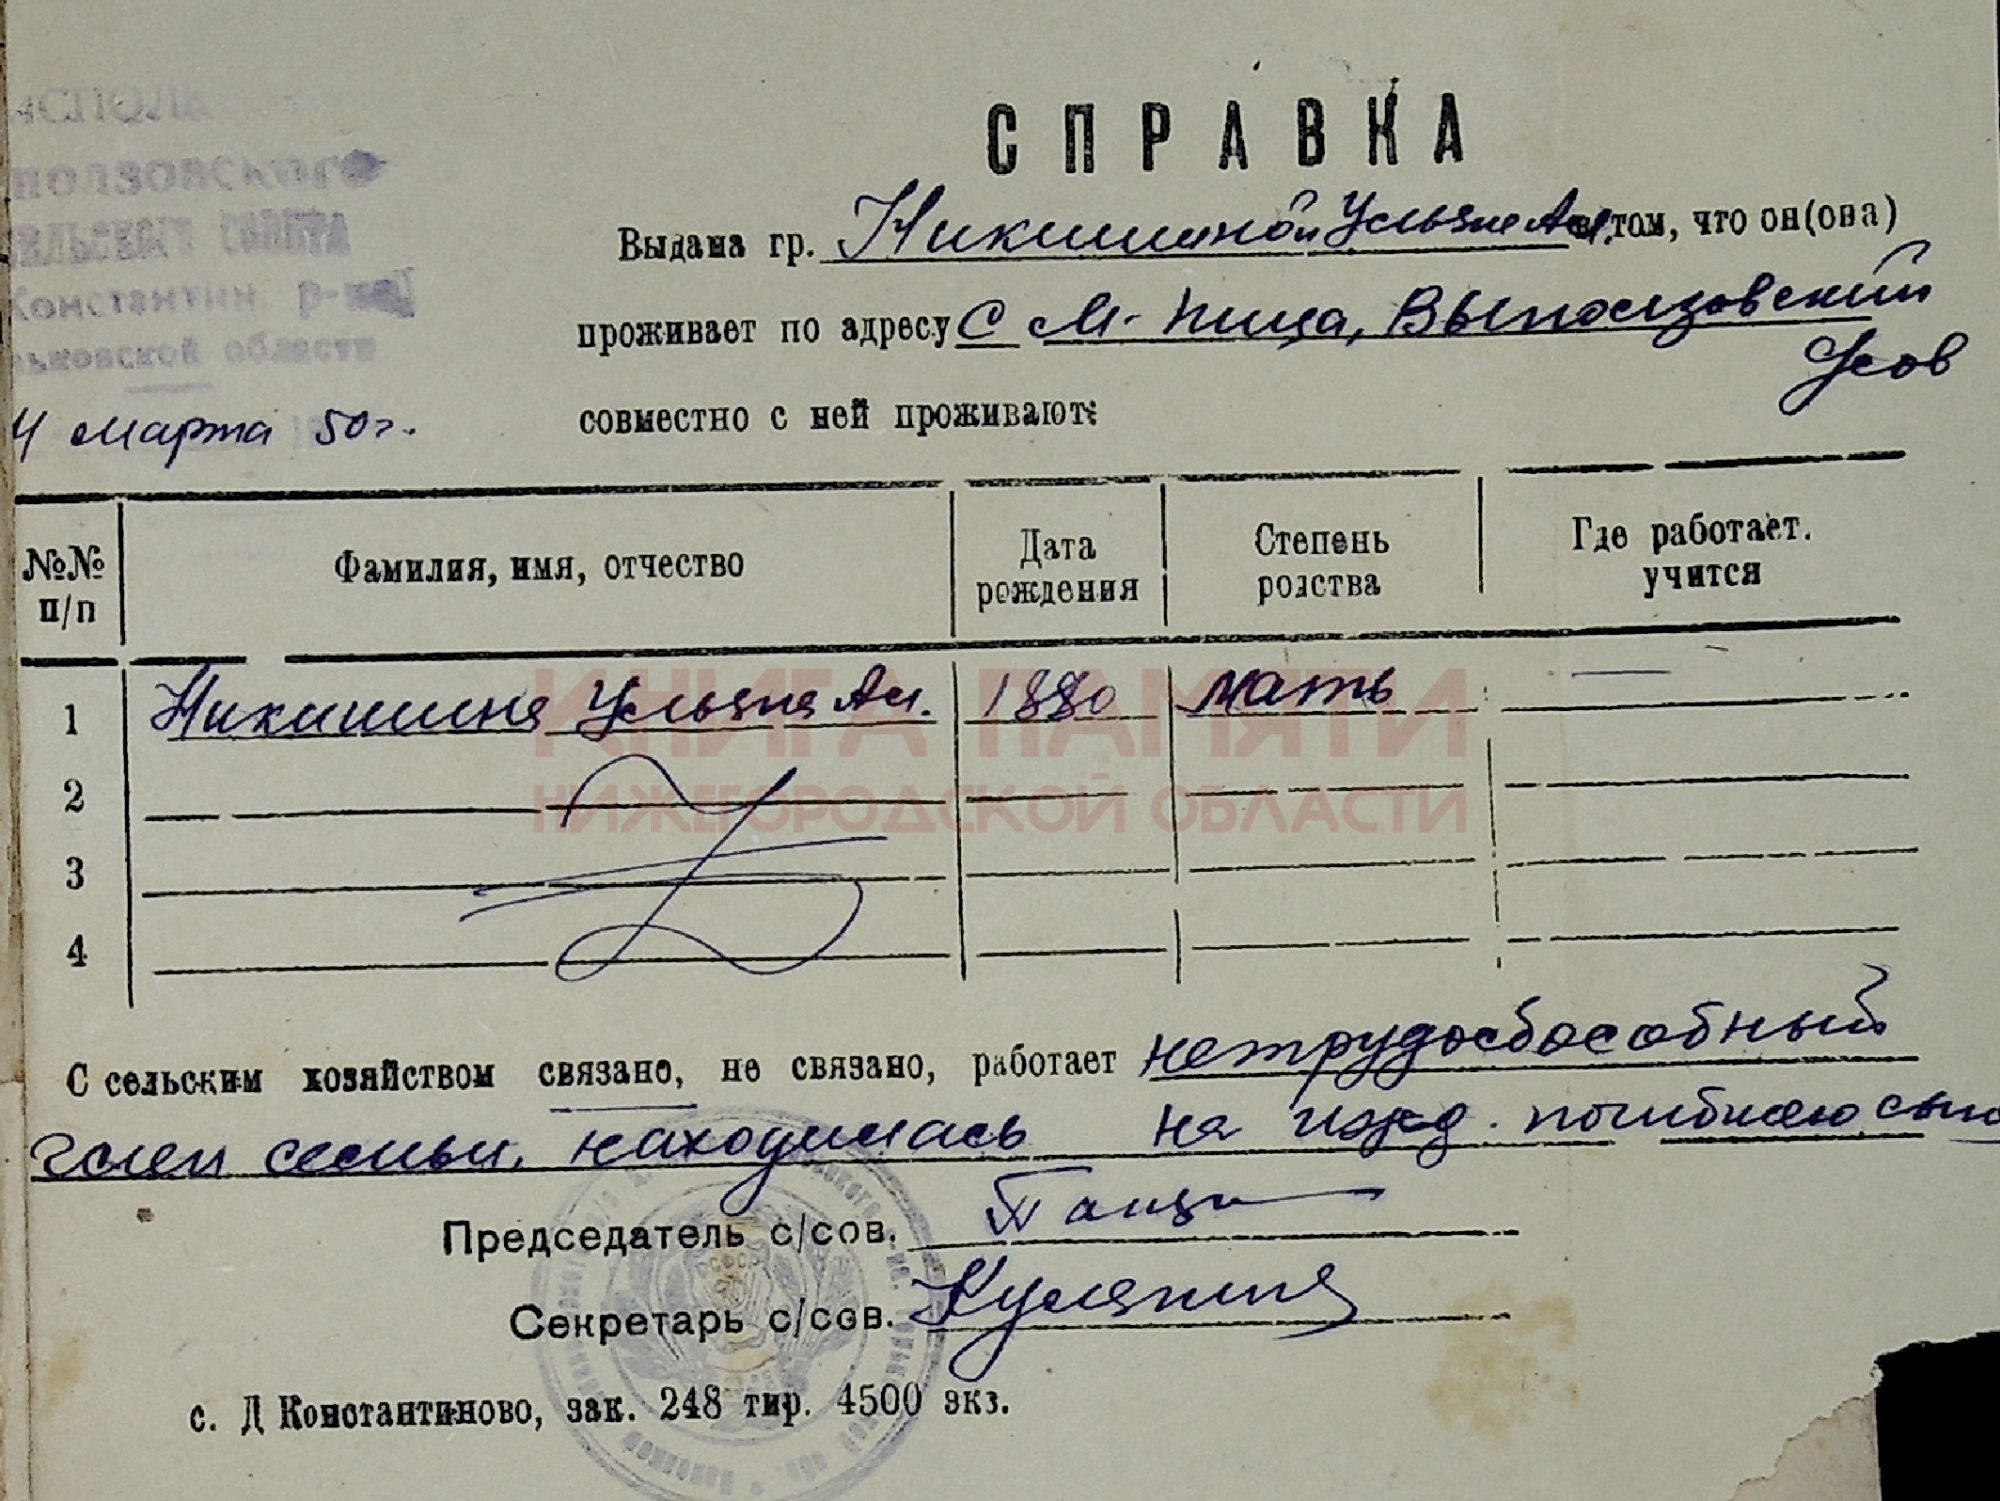 СПРАВКА
ползовского
сельского совета
Выдана гр. Никишиной Ульяне Ан. в том, что он(она)
Констант​ин р-на
проживает по адресу С М-Пица, Выползовский
ьковской области
с/сов
4 марта 50 г.
совместно с ней проживают:
№№ п/п Фамилия, имя, отчество Дата рождения Степень родства Где работает. учится
1 Никишина Ульяна Ан. 1880 мать —
КНИГА ПАМЯТИ
2
НИЖЕГОРОДСКОЙ ОБЛАСТИ
3
4
С сельским хозяйством связано, не связано, работает нетрудоспособный
член семьи, находилась на ижд. погибшего сына
Председатель с/сов.
Секретарь с/сов. Кулагина
с. Д Константиново, зак. 248 тир. 4500 экз.